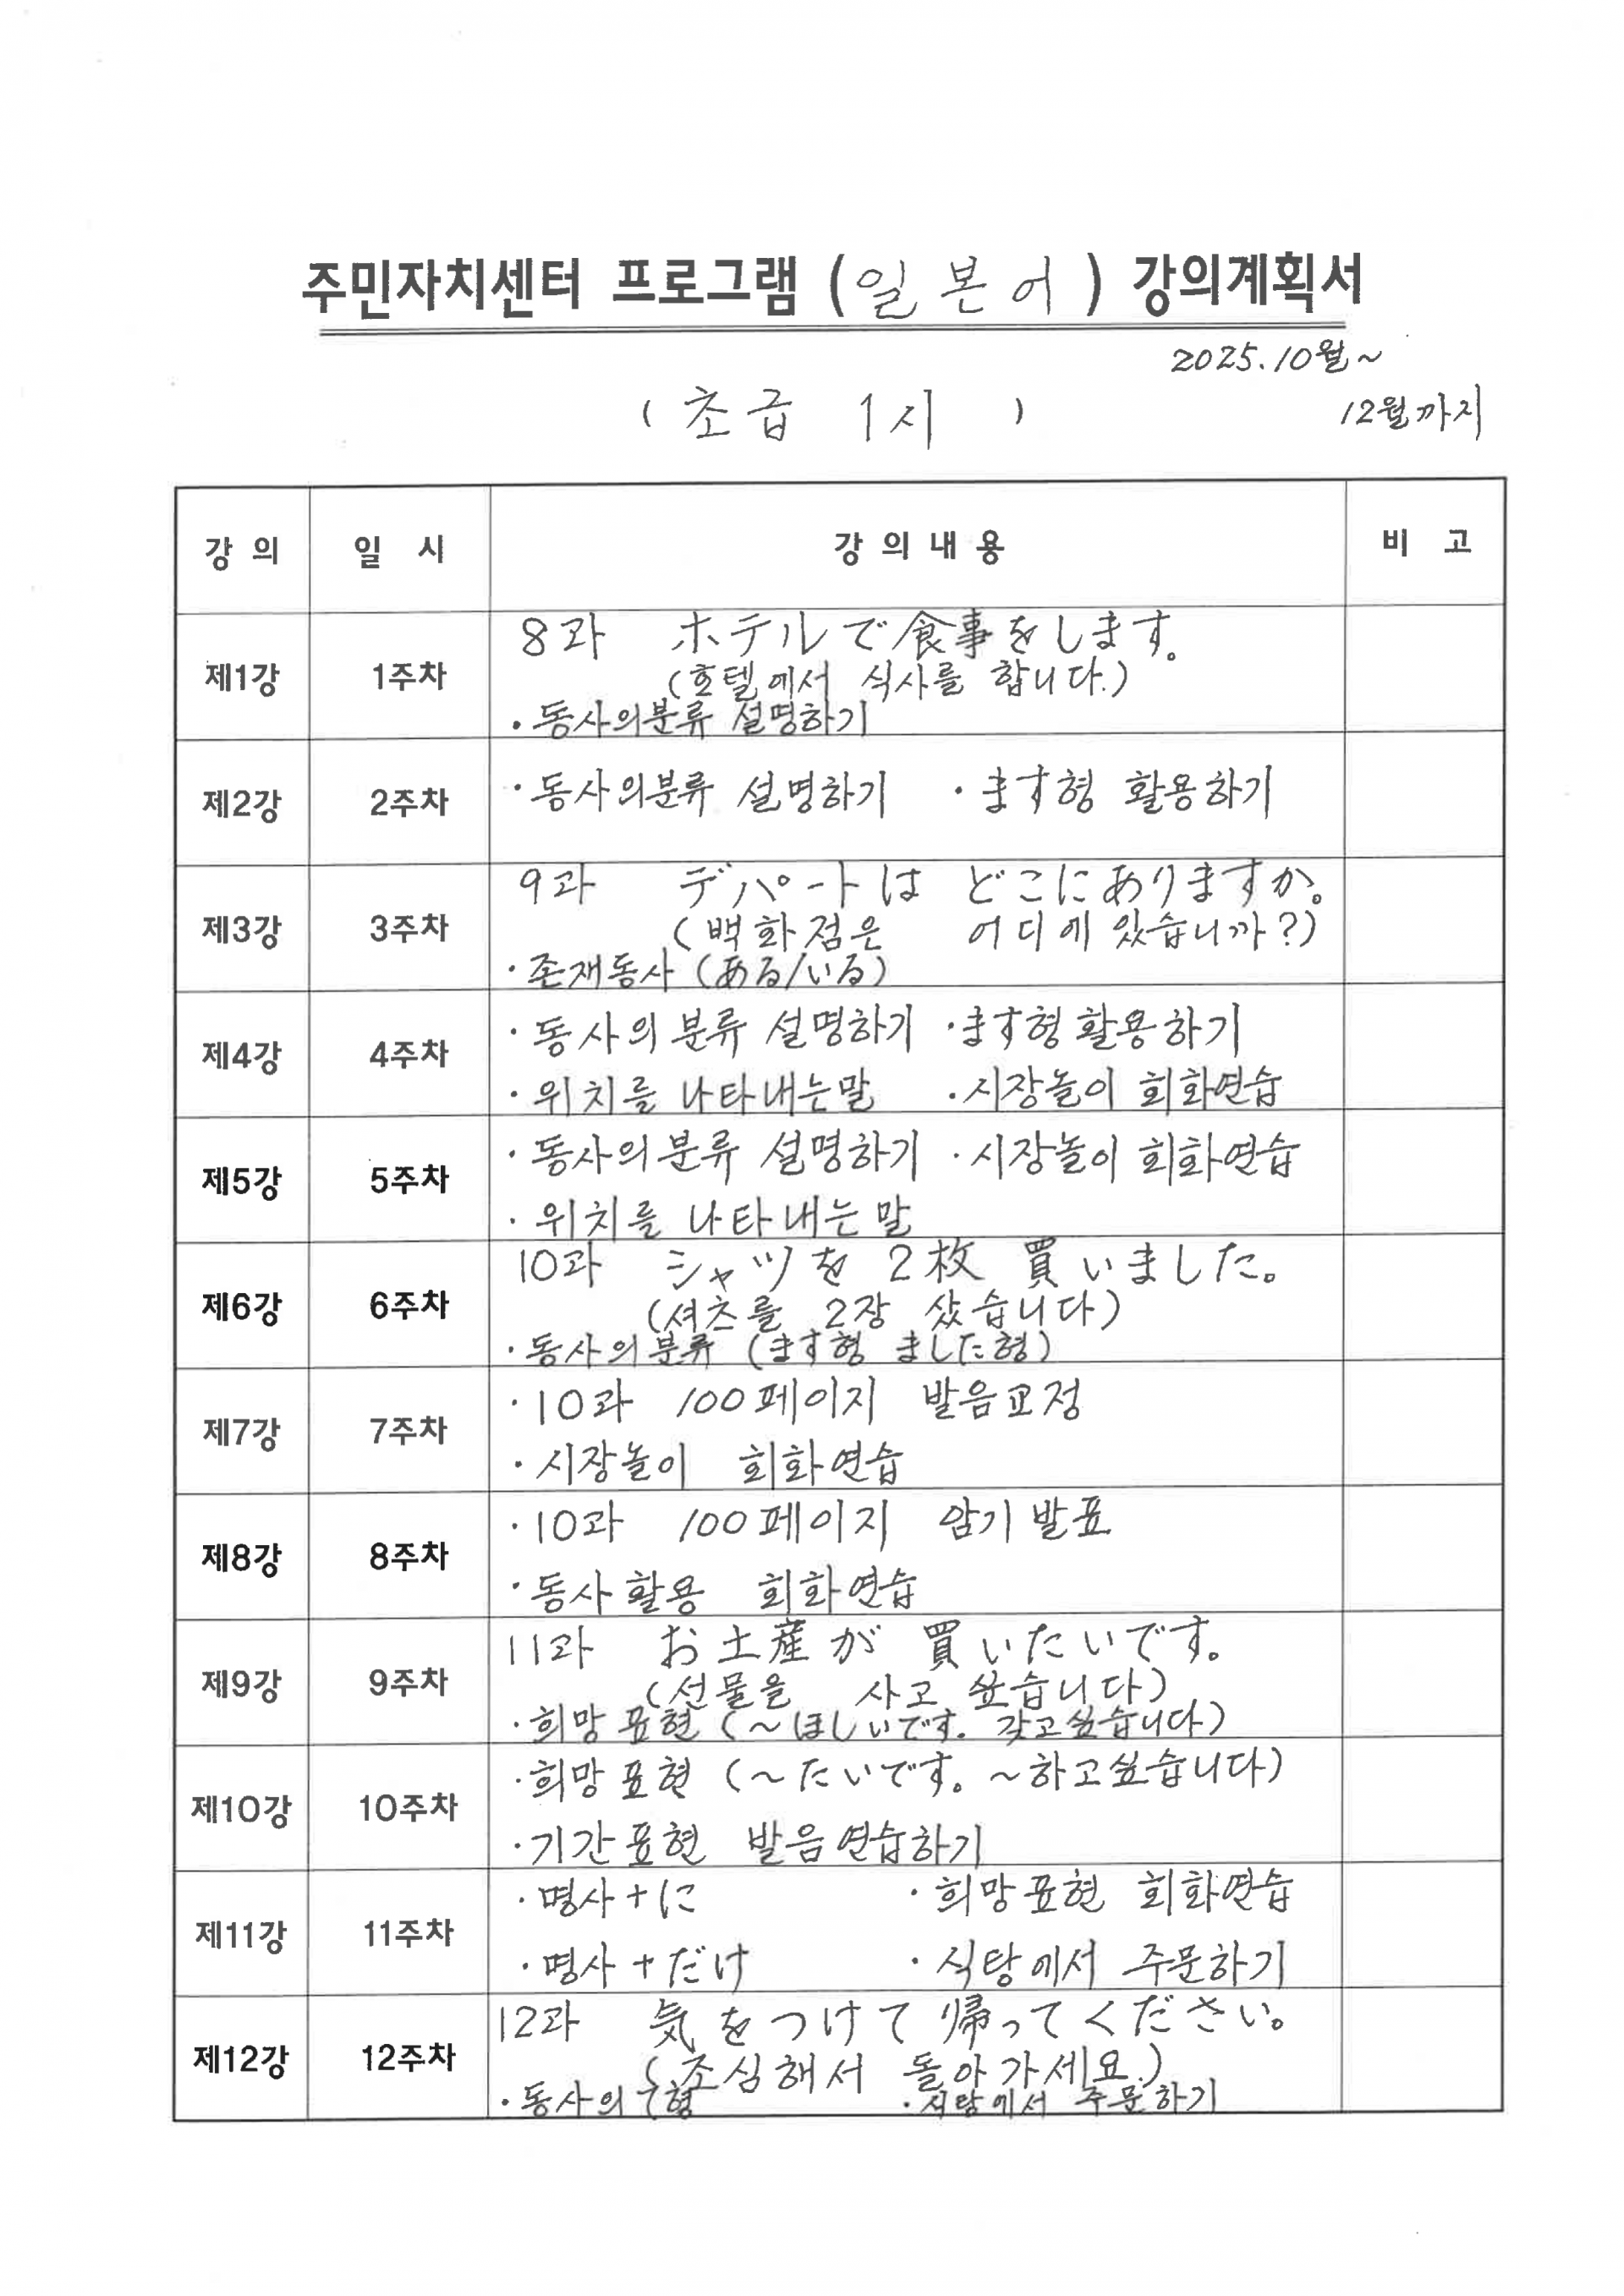 주민자치센터 프로그램 (일본어) 강의계획서
2025.10월~
12월까지
(초급 1시)
강 의 일 시 강 의 내 용 비 고
제1강 1주차
8과 ホテルで食事をします。
(호텔에서 식사를 합니다.)
・동사의분류 설명하기
제2강 2주차
・동사의분류 설명하기 ・ます형 활용하기
제3강 3주차
9과 デパートは どこにありますか。
(백화점은 어디에 있습니까?)
・존재동사 (ある/いる)
제4강 4주차
・동사의 분류 설명하기 ・ます형 활용하기
・위치를 나타내는말 ・시장놀이 회화연습
제5강 5주차
・동사의 분류 설명하기 ・시장놀이 회화연습
・위치를 나타내는 말
제6강 6주차
10과 シャツを 2枚 買いました。
(셔츠를 2장 샀습니다)
・동사의 분류 (ます형 ました형)
제7강 7주차
・10과 100페이지 발음교정
・시장놀이 회화연습
제8강 8주차
・10과 100페이지 암기발표
・동사활용 회화연습
제9강 9주차
11과 お土産が 買いたいです。
(선물을 사고 싶습니다)
・희망표현 (~ほしいです. 갖고싶습니다)
제10강 10주차
・희망표현 (~たいです。~하고싶습니다)
・기간표현 발음연습하기
제11강 11주차
・명사+に ・희망표현 회화연습
・명사+だけ ・식당에서 주문하기
제12강 12주차
12과 気をつけて 帰ってください。
(조심해서 돌아가세요.)
・동사의 て형 ・식당에서 주문하기